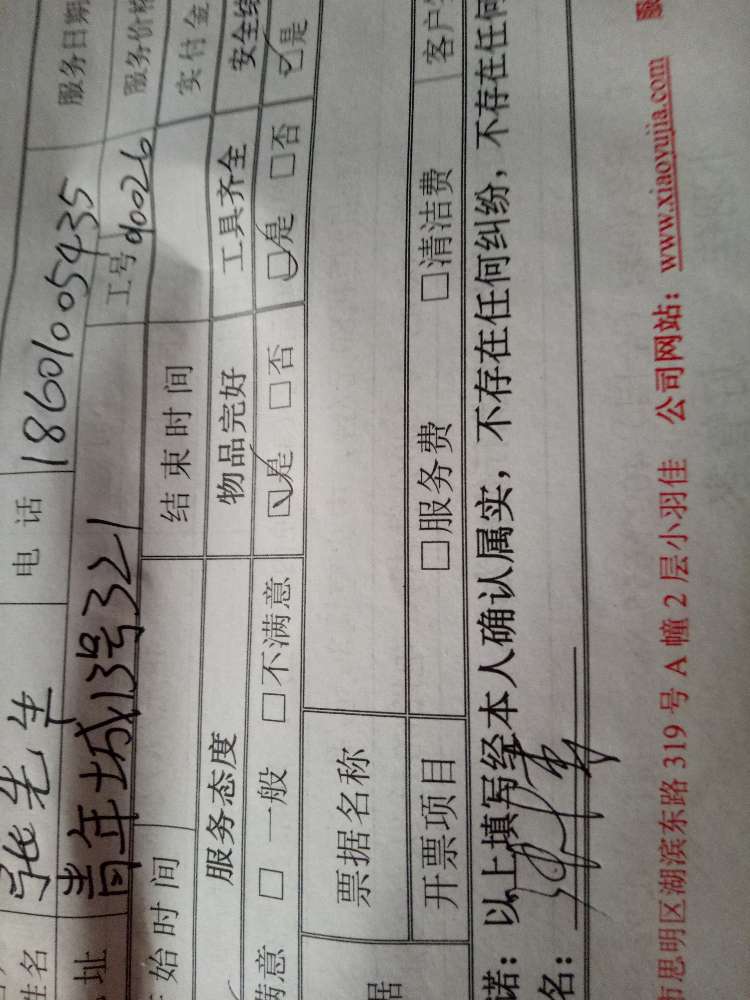 姓名 张先生 电话 18601005435 服务日期
址 青年城13号321 工号 90026 服务价格
始时间 结束时间 实付金
服务态度 物品完好 工具齐全 安全
满意 □ 一般 □不满意 ☑是 □否 ☑是 □否 ☑是
据 票据名称
开票项目 □服务费 □清洁费 客户
诺：以上填写经本人确认属实，不存在任何纠纷，不存在任何
名：
市思明区湖滨东路 319 号 A 幢 2 层小羽佳 公司网站：www.xiaoyujia.com 服